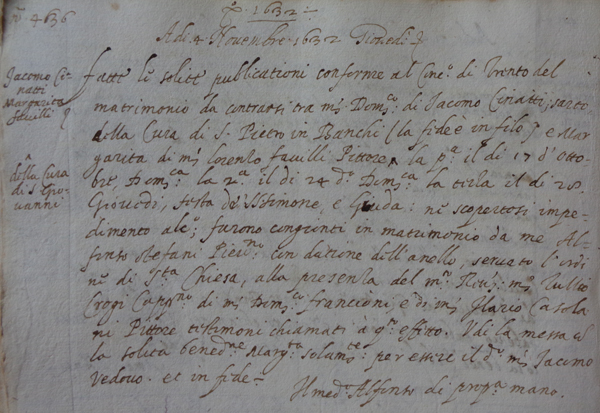 n.º 4636
1632
A dì 4 Novembre 1632 Giovedì
Jacomo Ci-
natti
Margarita
favilli
Fatte le solite publicationi conforme al Conc.º di Trento del
matrimonio da contrarsi tra m.s Dom.co di Jacomo Cinatti, sarto
della Cura di S. Pietro in Banchi (la fede è in filo) e Mar-
garita di m.s Lorenzo favilli Pittore, la p.a il dì 17 d'Otto-
della Cura
di S. Gio-
vanni
bre, Dom.ca la 2.a il dì 24 d.º Dom.ca la terza il dì 28
Giovedì, festa de SS. Simone, e Giuda: ne scopertosi impe-
dimento alc.º; furono congiunti in matrimonio da me Al-
finto stefani con dazione dell'anello, servato l'ordi
ne di S.ta Chiesa, alla presenza del m.to m.s
di m.s Dom.co francioni, e di m.s Ilario Casola
ni Pittore testimoni chiamati a q.º effetto. Udì la messa
la solita bened.ne Marg.ta solam.te per essere il d.º m.s Jacomo
vedovo. et in fede
Il med.º Alfinto di prop.a mano.